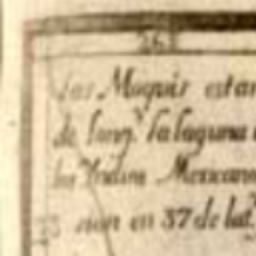 262
los Moquis estan
de long.ᵈ la laguna
los Indios Mexicano
cion en 37 de lat.